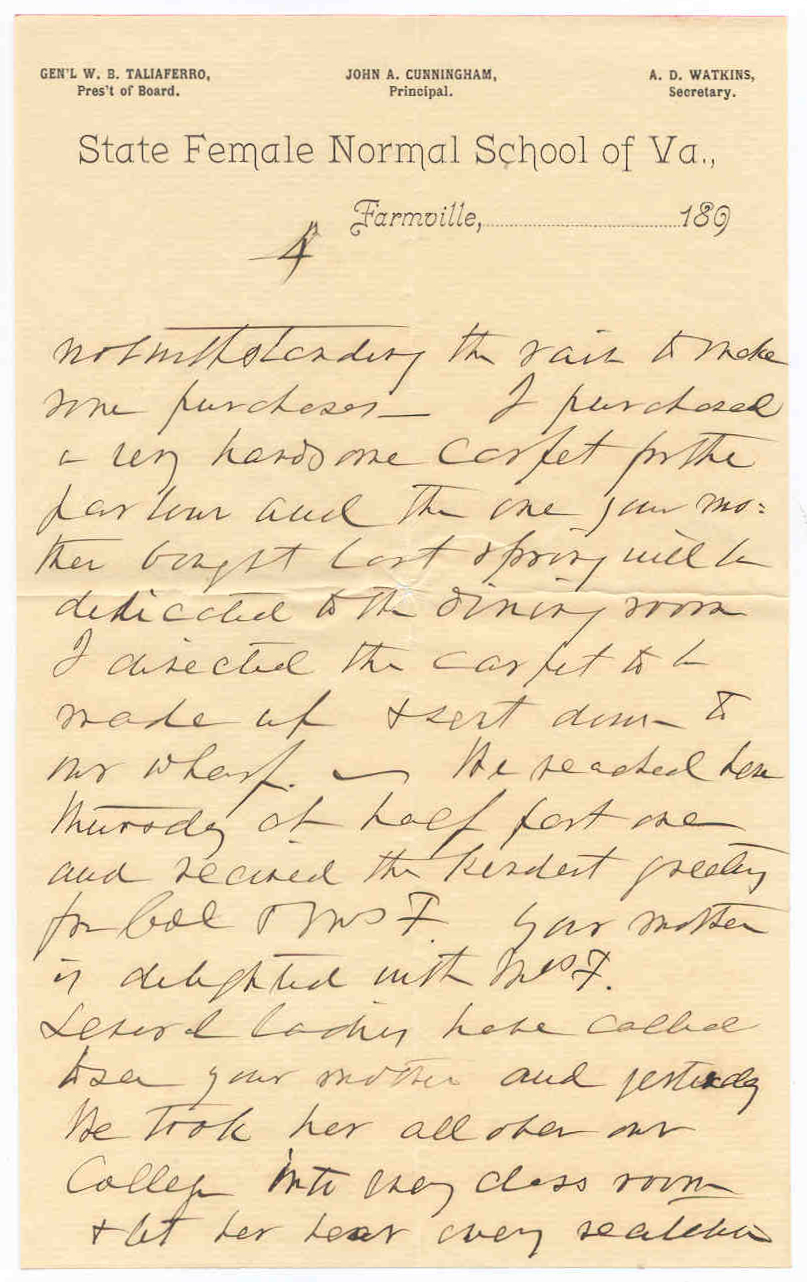 GEN'L W. B. TALIAFERRO, JOHN A. CUNNINGHAM, A. D. WATKINS,
Pres't of Board. Principal. Secretary.
State Female Normal School of Va.,
Farmville, 189
4
notwithstanding the rain to make
some purchases — I purchased
a very handsome carpet for the
parlour and the one your mo:
ther bought last spring will be
dedicated to the dining room
I directed the carpet to be
made up & sent down to
our wharf. — We reached here
Thursday at half past one
and received the kindest greeting
from Col & Mrs F. Your mother
is delighted with Mrs F.
Several ladies have called
to see your mother and yesterday
We took her all over our
College into every class room
& let her hear every recitation